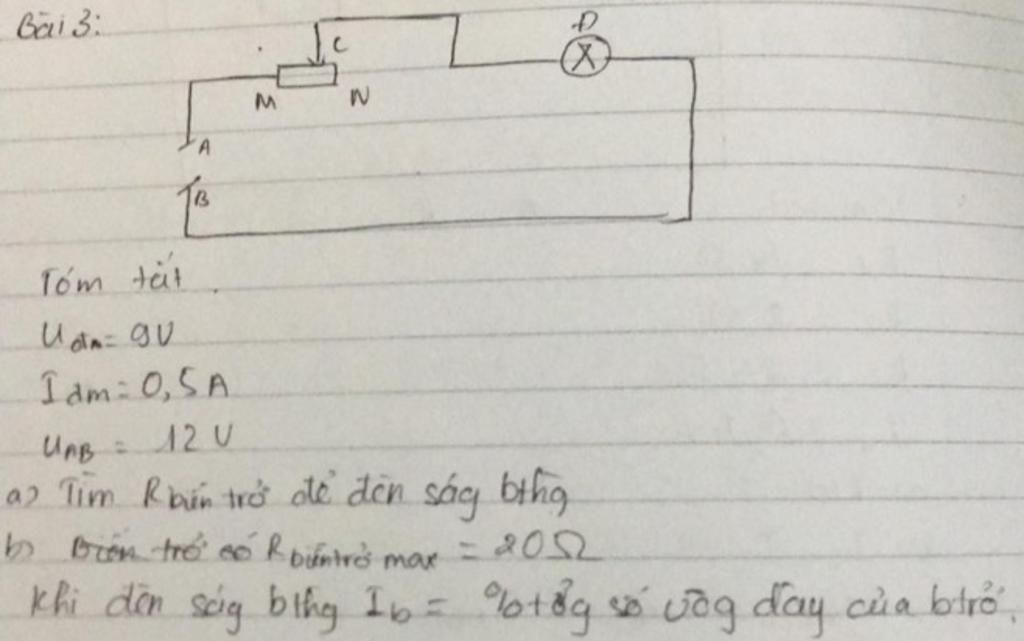 Bài 3:
Đ
C
M N
A
B
Tóm tắt.
Uđm = 9V
Iđm = 0,5A
UAB = 12V
a) Tìm Rbiến trở để đèn ság bthg
b) Biến trở có Rbiến trở max = 20Ω
Khi đèn ság bthg Ib = % tổg số vòg dây của btrở.